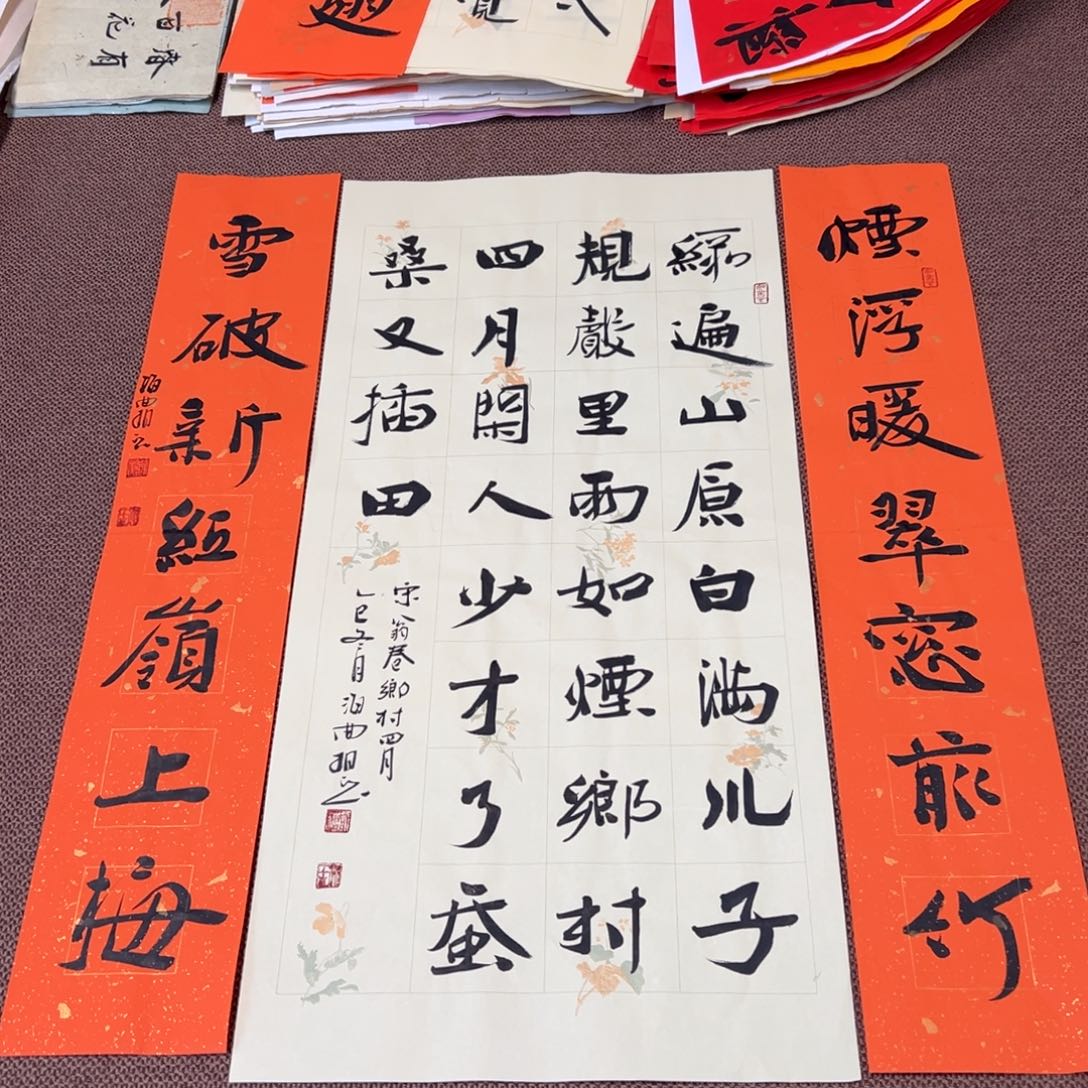 煙浮暖翠窓前竹
綠遍山原白滿川子
規聲里雨如煙鄉村
四月閑人少才了蚕
桑又插田
宋翁卷鄉村四月
乙巳冬月
雪破新紅嶺上梅